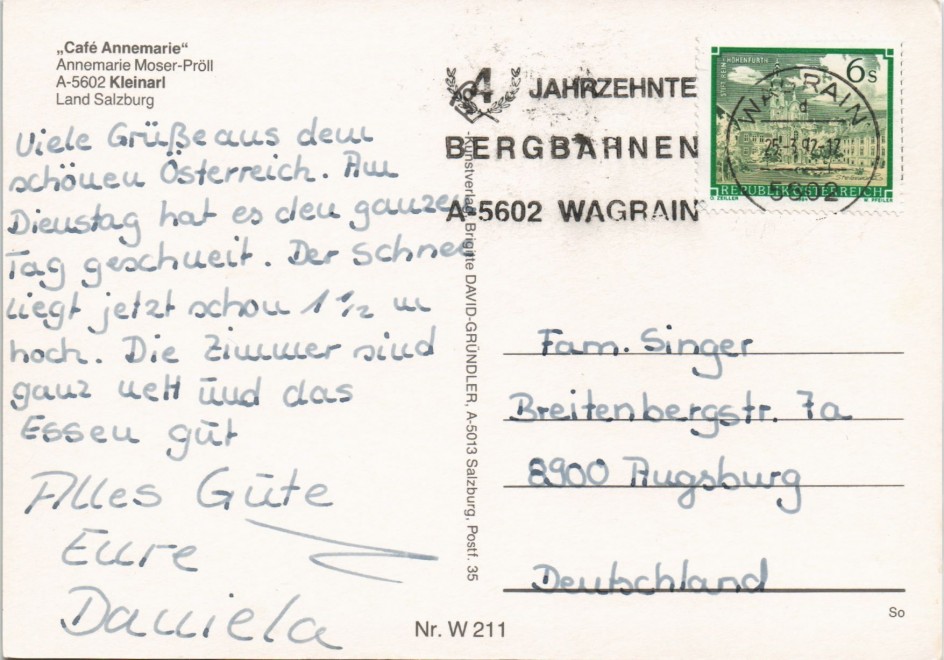 „Café Annemarie“
Annemarie Moser-Pröll
A-5602 Kleinarl
Land Salzburg
Viele Grüße aus dem
schönen Österreich. Am
Dienstag hat es den ganzen
Tag geschneit. Der Schnee
liegt jetzt schon 1 1/2 m
hoch. Die Zimmer sind
ganz nett und das
Essen gut
Alles Gute
Eure
Daniela
4 JAHRZEHNTE
BERGBAHNEN
A-5602 WAGRAIN
STIFT REIN-HOHENFURTH
6 S
WAGRAIN
5602
REPUBLIK ÖSTERREICH
O. ZEILLER
W. PFEILER
Kunstverlag Brigitte DAVID-GRÜNDLER, A-5013 Salzburg, Postf. 35
Fam. Singer
Breitenbergstr. 7a
8900 Augsburg
Deutschland
So
Nr. W 211